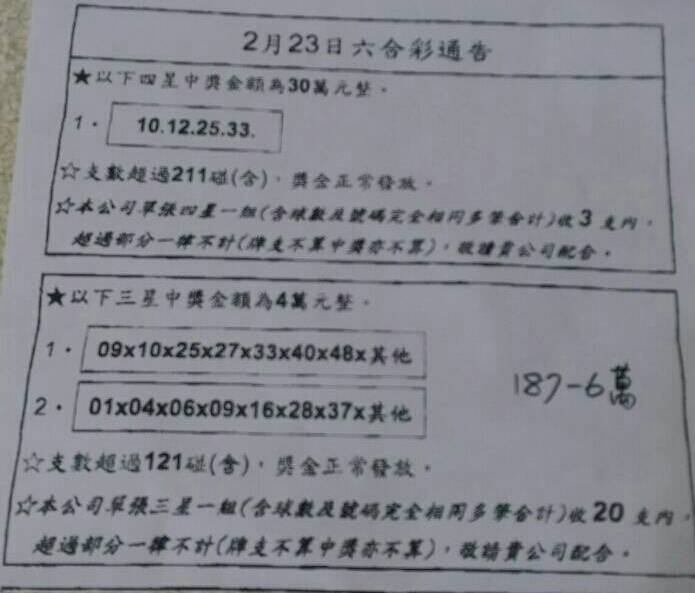 2月23日六合彩通告
★以下四星中獎金額為30萬元整。
1. 10.12.25.33.
☆支數超過211碰(含)，獎金正常發放。
☆本公司單張四星一組(含球數及號碼完全相同多筆合計)收3支內，
超過部分一律不計(牌支不算中獎亦不算)，敬請貴公司配合。
★以下三星中獎金額為4萬元整。
1. 09x10x25x27x33x40x48x其他
187-6萬
2. 01x04x06x09x16x28x37x其他
☆支數超過121碰(含)，獎金正常發放。
☆本公司單張三星一組(含球數及號碼完全相同多筆合計)收20支內，
超過部分一律不計(牌支不算中獎亦不算)，敬請貴公司配合。